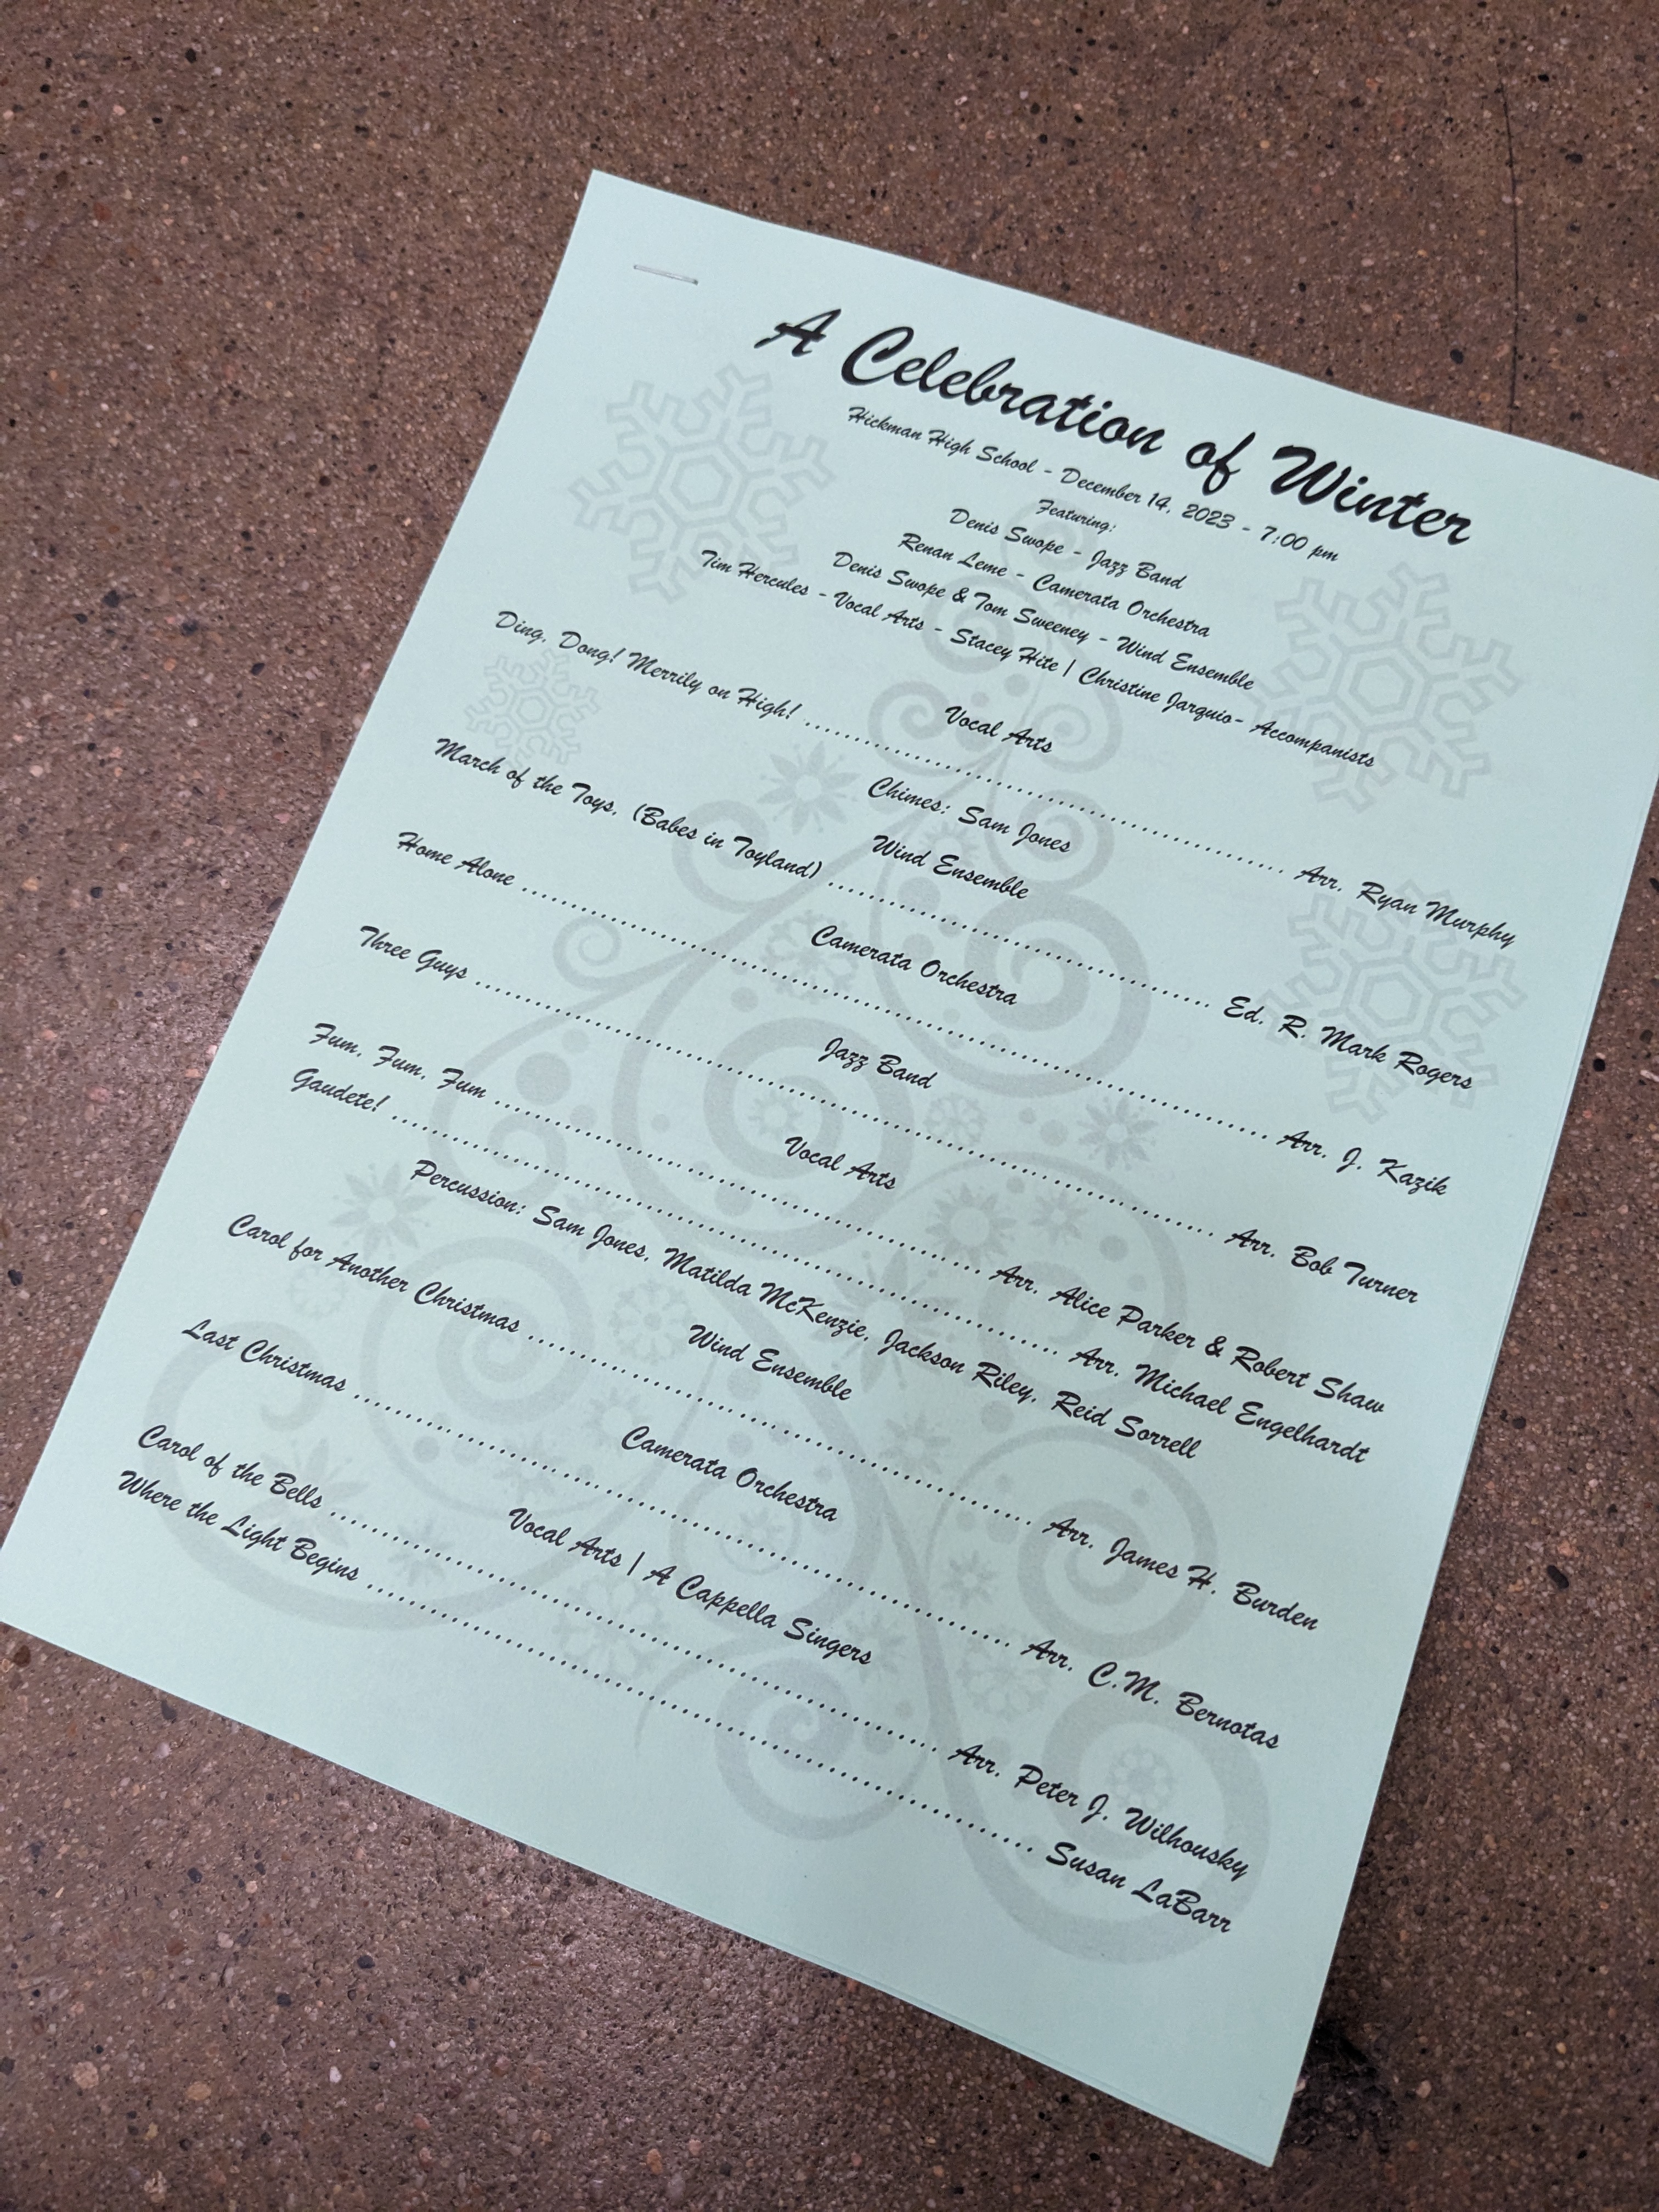 A Celebration of Winter
Hickman High School - December 14, 2023 - 7:00 pm
Featuring:
Denis Swope - Jazz Band
Renan Leme - Camerata Orchestra
Denis Swope & Tom Sweeney - Wind Ensemble
Tim Hercules - Vocal Arts - Stacey Hite | Christine Jarquio- Accompanists
Vocal Arts
Ding, Dong! Merrily on High! ........................................ Arr. Ryan Murphy
Chimes: Sam Jones
Wind Ensemble
March of the Toys, (Babes in Toyland) ........................................ Ed. R. Mark Rogers
Camerata Orchestra
Home Alone ........................................ Arr. J. Kazik
Jazz Band
Three Guys ........................................ Arr. Bob Turner
Vocal Arts
Fum, Fum, Fum ........................................ Arr. Alice Parker & Robert Shaw
Gaudete! ........................................ Arr. Michael Engelhardt
Percussion: Sam Jones, Matilda McKenzie, Jackson Riley, Reid Sorrell
Wind Ensemble
Carol for Another Christmas ........................................ Arr. James H. Burden
Camerata Orchestra
Last Christmas ........................................ Arr. C.M. Bernotas
Vocal Arts | A Cappella Singers
Carol of the Bells ........................................ Arr. Peter J. Wilhousky
Where the Light Begins ........................................ Susan LaBarr